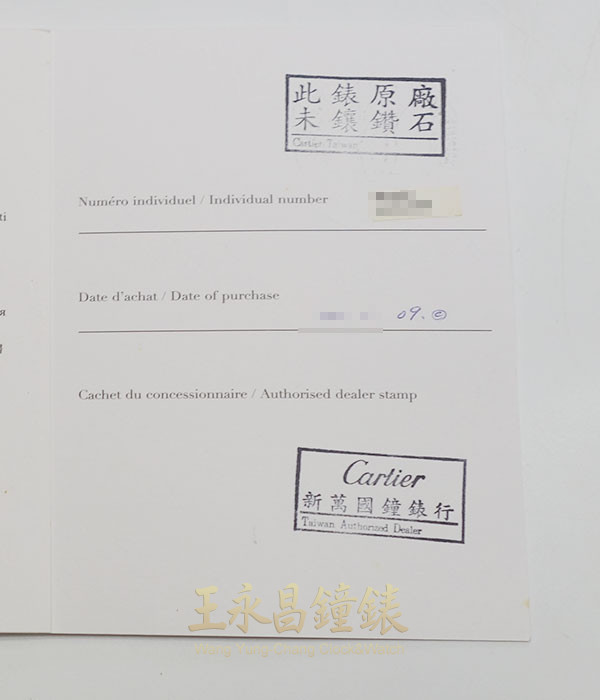 此錶原廠
未鑲鑽石
Cartier Taiwan
ti
Numéro individuel / Individual number
я
Date d'achat / Date of purchase
09.
Cachet du concessionnaire / Authorised dealer stamp
Cartier
新萬國鐘錶行
Taiwan Authorized Dealer
王永昌鐘錶